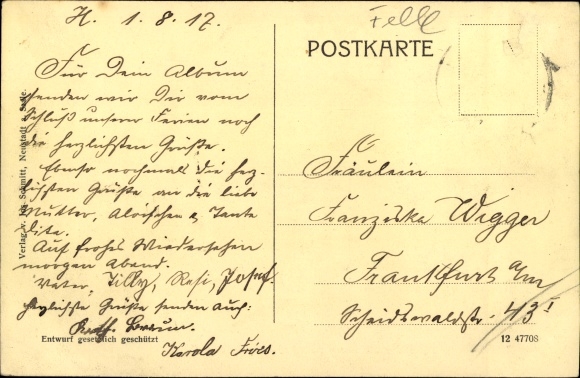 H. 1. 8. 17.
Felle
POSTKARTE
Für Dein Album
senden wir Dir vom
Schluß unserer Ferien noch
die herzlichsten Grüße.
Ebenso nochmals die herz-
lichsten Grüße an die liebe
Mutter, Aloischen & Tante
Auf frohes Wiedersehen
morgen Abend.
Vater, Tilly, Resi, Josef.
Herzlichste Grüße senden auch:
Kath. Braun.
Karola Fröes.
Fräulein
Franziska Wigger
Frankfurt a/m
Scheidswaldstr. 43 I
Verlag v. Jos. Schmitt, Neustadt a. Saale.
Entwurf gesetzlich geschützt
12 47708